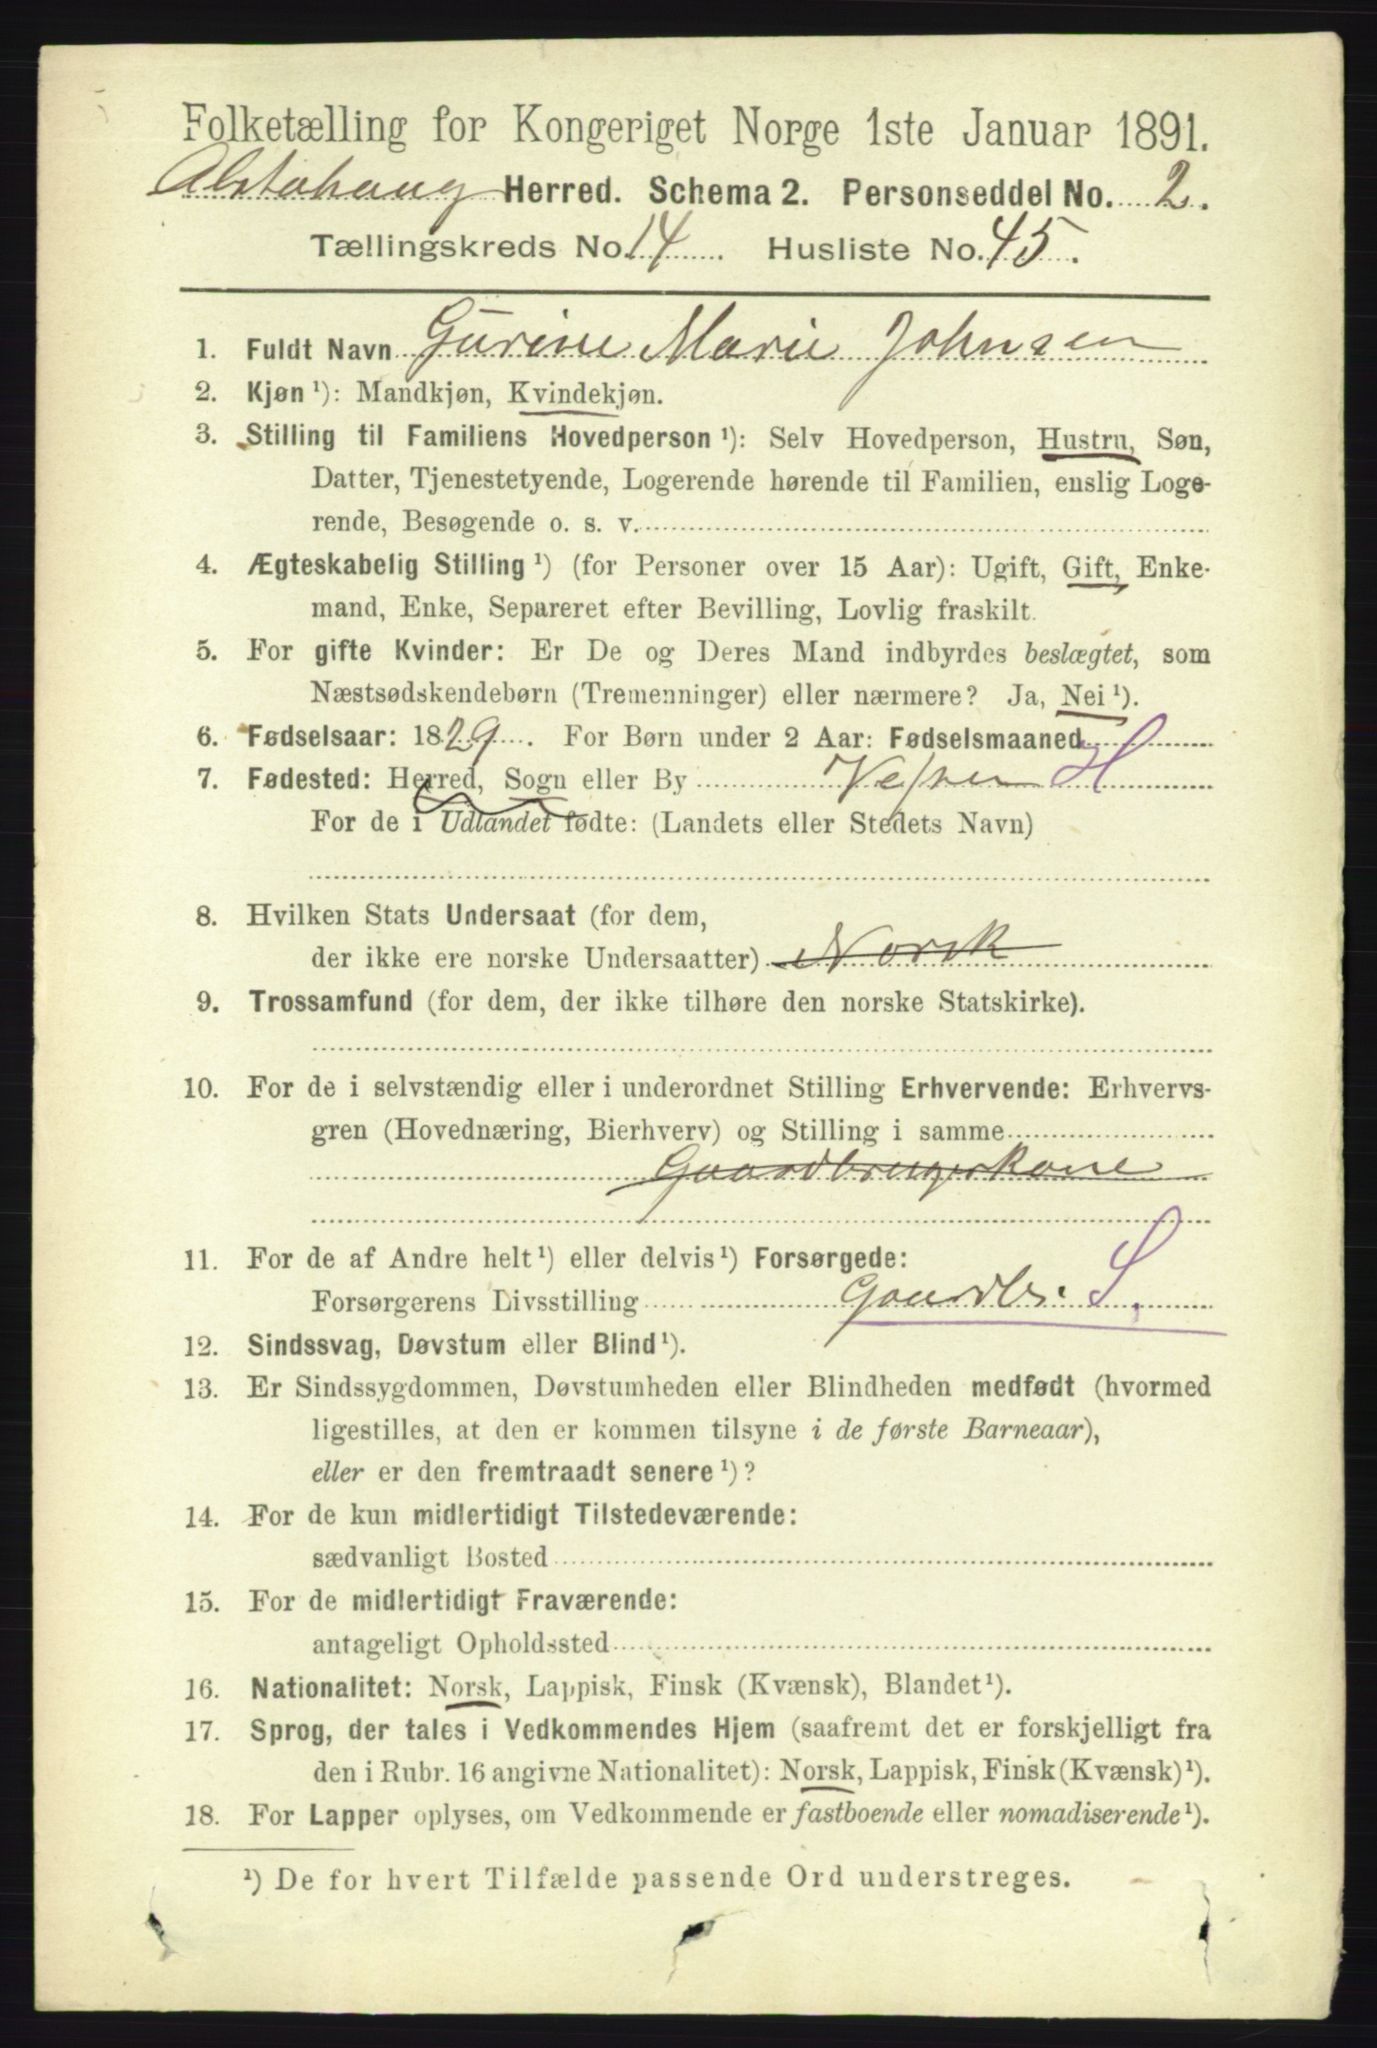 Folketælling for Kongeriget Norge 1ste Januar 1891.
Alstahaug Herred. Schema 2. Personseddel No. 2.
Tællingskreds No. 14 Husliste No. 45.
1. Fuldt Navn Gurine Marie Johnsen
2. Kjøn ¹): Mandkjøn, Kvindekjøn.
3. Stilling til Familiens Hovedperson ¹): Selv Hovedperson, Hustru, Søn,
Datter, Tjenestetyende, Logerende hørende til Familien, enslig Loge-
rende, Besøgende o. s. v.
4. Ægteskabelig Stilling ¹) (for Personer over 15 Aar): Ugift, Gift, Enke-
mand, Enke, Separeret efter Bevilling, Lovlig fraskilt.
5. For gifte Kvinder: Er De og Deres Mand indbyrdes beslægtet, som
Næstsødskendebørn (Tremenninger) eller nærmere? Ja, Nei ¹).
6. Fødselsaar: 1829. For Børn under 2 Aar: Fødselsmaaned
7. Fødested: Herred, Sogn eller By Vefsen H
For de i Udlandet fødte: (Landets eller Stedets Navn)
8. Hvilken Stats Undersaat (for dem,
der ikke ere norske Undersaatter) Norsk
9. Trossamfund (for dem, der ikke tilhøre den norske Statskirke).
10. For de i selvstændig eller i underordnet Stilling Erhvervende: Erhvervs-
gren (Hovednæring, Bierhverv) og Stilling i samme
Gaardbrugerkone
11. For de af Andre helt ¹) eller delvis ¹) Forsørgede:
Forsørgerens Livsstilling Gaardbr. S.
12. Sindssvag, Døvstum eller Blind ¹).
13. Er Sindssygdommen, Døvstumheden eller Blindheden medfødt (hvormed
ligestilles, at den er kommen tilsyne i de første Barneaar),
eller er den fremtraadt senere ¹)?
14. For de kun midlertidigt Tilstedeværende:
sædvanligt Bosted
15. For de midlertidigt Fraværende:
antageligt Opholdssted
16. Nationalitet: Norsk, Lappisk, Finsk (Kvænsk), Blandet ¹).
17. Sprog, der tales i Vedkommendes Hjem (saafremt det er forskjelligt fra
den i Rubr. 16 angivne Nationalitet): Norsk, Lappisk, Finsk (Kvænsk) ¹).
18. For Lapper oplyses, om Vedkommende er fastboende eller nomadiserende ¹).
¹) De for hvert Tilfælde passende Ord understreges.